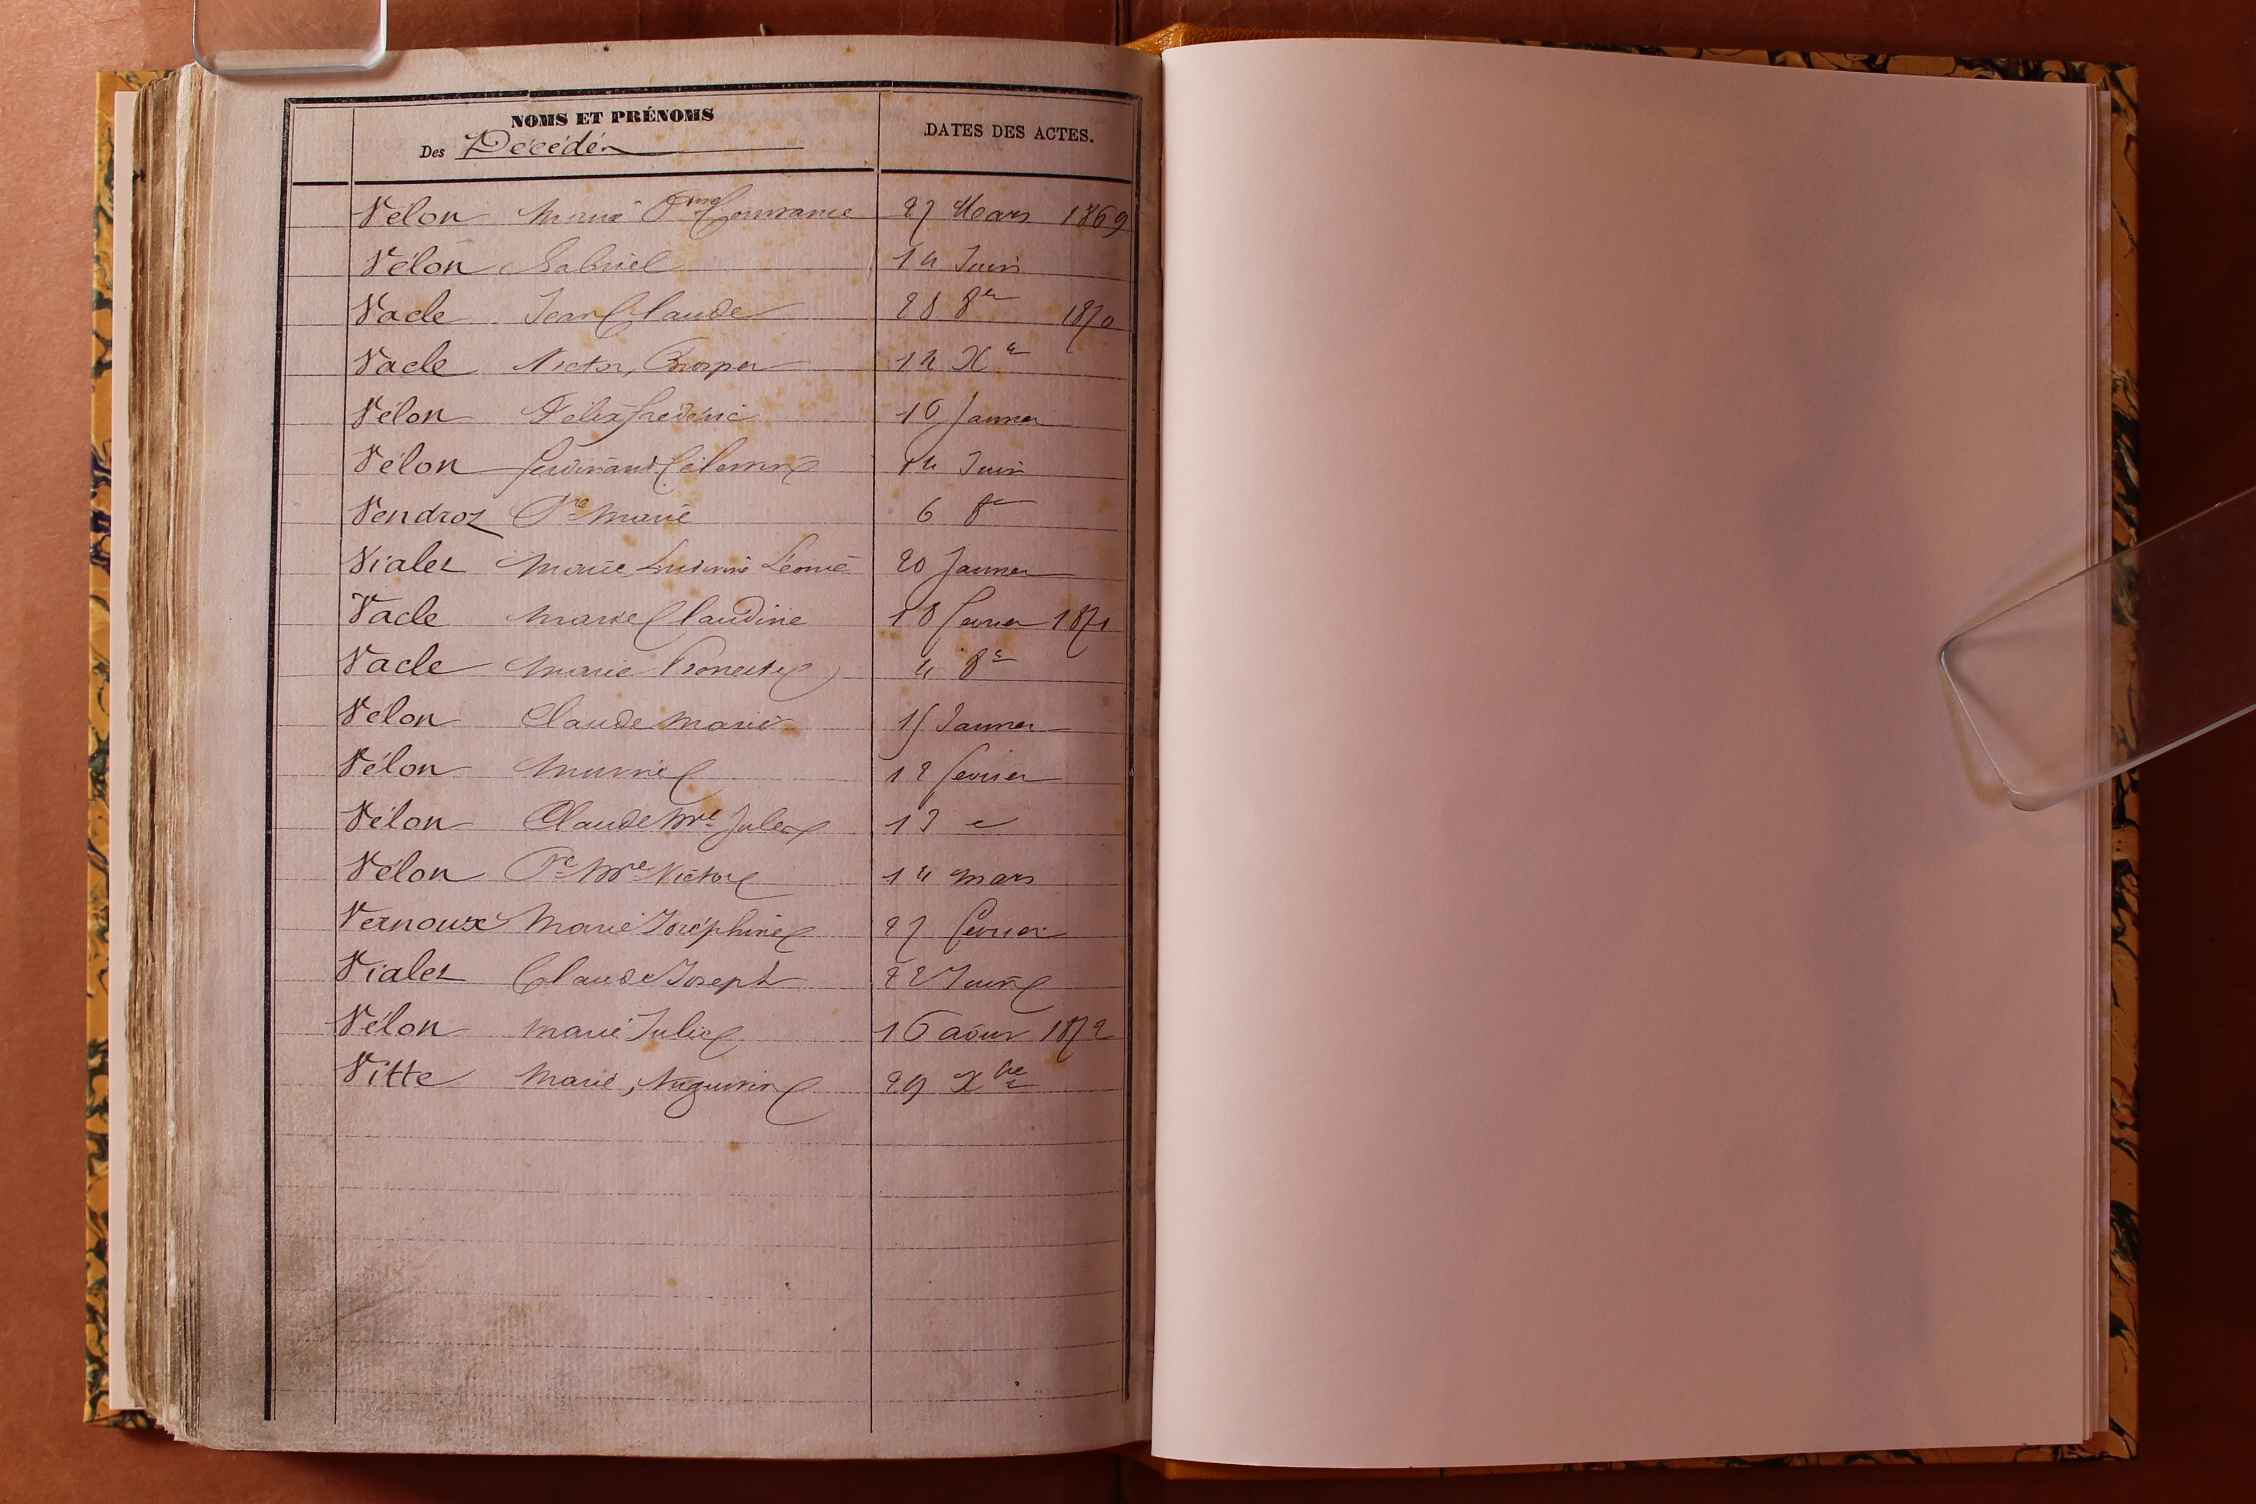 NOMS ET PRÉNOMS
Des Décédés
DATES DES ACTES.
Vélon Marie Constance 27 Mars 1869
Vélon Gabriel 14 Juin
Vacle Jean Claude 28 8bre 1870
Vacle Victor, Prosper 14 Xbre
Vélon Félix frédéric 16 Janvier
Vélon ferdinand Célestin 14 Juin
Vendroz Pre Marie 6 8bre
Vialet Marie Léonie 20 Janvier
Vacle Marie Claudine 18 fevrier 1871
Vacle Marie 4 8bre
Vélon Claude Marie 15 Janvier
Vélon 12 fevrier
Vélon Claude Mrie Jules 13
Vélon Pre Mrie Victor 14 Mars
Vernoux Marie Joséphine 27 fevrier
Vialet Claude Joseph 22 Juin
Vélon Marie Julie 16 aout 1872
Vitte Marie, Augustine 29 Xbre